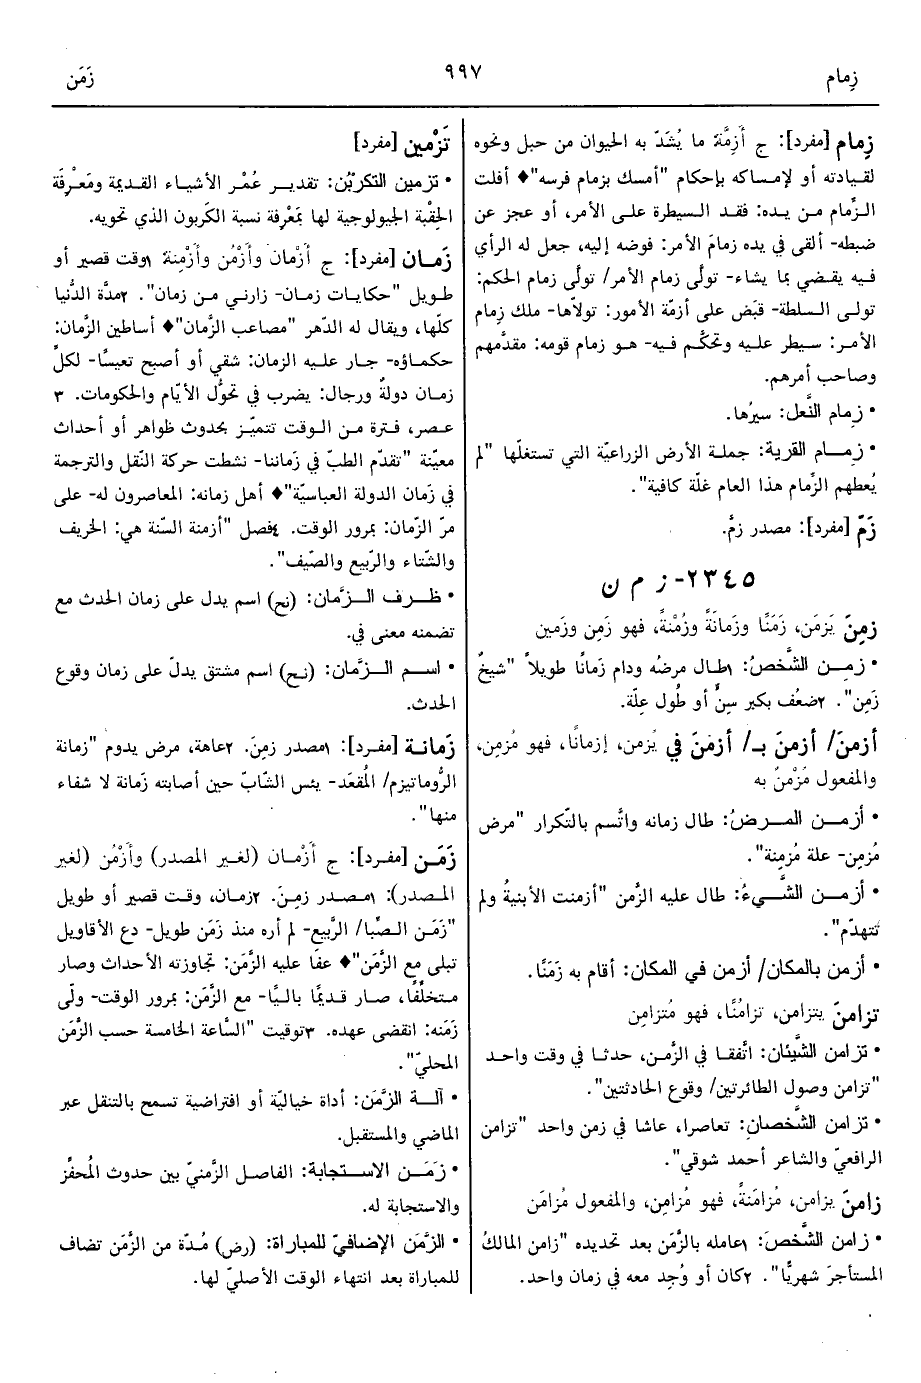 زِمام
٩٩٧
زَمَن
زِمام [مفرد]: ج أَزِمَّة: ما يُشَدّ به الحيوان من حبل ونحوه
لقيادته أو لإمساكه بإحكام "أمسك بزمام فرسه"♦ أفلت
الزِّمام من يده: فقد السيطرة على الأمر، أو عجز عن
ضبطه- ألقى في يده زمامَ الأمر: فوضه إليه، جعل له الرأي
فيه يقضي بما يشاء- تولَّى زمام الأمر/ تولَّى زمام الحكم:
تولى السلطة- قبَض على أزمّة الأمور: تولاّها- ملك زِمام
الأمر: سيطر عليه وتحكَّم فيه- هو زمام قومه: مقدَّمهم
وصاحب أمرهم.
• زِمام النَّعل: سيرُها.
• زِمام القرية: جملة الأرض الزراعيّة التي تستغلّها "لم
يُعطهم الزِّمام هذا العام غلّة كافية".
زَمّ [مفرد]: مصدر زمَّ.
٢٣٤٥- ز م ن
زمِنَ يَزمَن، زَمَنًا وزَمانَةً وزُمْنةً، فهو زَمِن وزَمين
• زمِن الشَّخصُ: ١طال مرضُه ودام زَمانًا طويلاً "شيخٌ
زَمِن". ٢ضعُف بكبر سِنٍّ أو طُول عِلّة.
أزمنَ/ أزمنَ بـ/ أزمنَ في يُزمن، إزمانًا، فهو مُزمِن،
والمفعول مُزْمنٌ به
• أزمن المرضُ: طال زمانه واتَّسم بالتّكرار "مرض
مُزمِن- علة مُزمِنة".
• أزمن الشَّيءُ: طال عليه الزَّمن "أزمنت الأبنيةُ ولم
تتهدّم".
• أزمن بالمكان/ أزمن في المكان: أقام به زَمَنًا.
تزامنَ يتزامن، تزامُنًا، فهو مُتزامِن
• تزامن الشَّيئان: اتَّفقا في الزَّمن، حدثا في وقت واحد
"تزامن وصول الطائرتين/ وقوع الحادثتين".
• تزامن الشَّخصان: تعاصرا، عاشا في زمن واحد "تزامن
الرافعيّ والشاعر أحمد شوقي".
زامنَ يزامن، مُزامَنةً، فهو مُزامِن، والمفعول مُزامَن
• زامن الشَّخصَ: ١عامله بالزَّمَن بعد تحديده "زامن المالكُ
المستأجرَ شهريًّا". ٢كان أو وُجِد معه في زمان واحد.
تَزْمين [مفرد]
• تزمين التكربُن: تقدير عُمْر الأشياء القديمة ومَعْرِفَة
الحِقْبة الجيولوجية لها بمَعْرِفة نسبة الكَربون الذي تحويه.
زَمان [مفرد]: ج أزْمان وأزْمُن وأزْمِنة: ١وقت قصير أو
طويل "حكايات زمان- زارني من زمان". ٢مدَّة الدُّنيا
كلّها، ويقال له الدّهر "مصاعب الزَّمان"♦ أساطين الزَّمان:
حكماؤه- جار عليه الزمان: شقي أو أصبح تعيسًا- لكلِّ
زمان دولةٌ ورجال: يضرب في تحوُّل الأيّام والحكومات. ٣
عصر، فترة من الوقت تتميّز بحدوث ظواهر أو أحداث
معيّنة "تقدّم الطبّ في زَماننا- نشطت حركة النّقل والترجمة
في زَمان الدولة العباسيّة"♦ أهل زمانه: المعاصرون له- على
مرّ الزّمان: بمرور الوقت. ٤فصل "أزمنة السّنة هي: الخريف
والشّتاء والرّبيع والصّيف".
• ظرف الزَّمان: (نح) اسم يدل على زمان الحدث مع
تضمنه معنى في.
• اسم الزَّمان: (نح) اسم مشتق يدلّ على زمان وقوع
الحدث.
زَمانة [مفرد]: ١مصدر زمِنَ. ٢عاهة، مرض يدوم "زمانة
الرُّوماتيزم/ المُقعَد- يئس الشّابّ حين أصابته زَمانة لا شفاء
منها".
زَمَن [مفرد]: ج أزْمان (لغير المصدر) وأزْمُن (لغير
المصدر): ١مصدر زمِنَ. ٢زمان، وقت قصير أو طويل
"زَمَن الصِّبا/ الرَّبيع- لم أره منذ زَمَن طويل- دع الأقاويل
تبلى مع الزَّمَن"♦ عفَا عليه الزَّمَن: تجاوزته الأحداث وصار
متخلِّفًا، صار قديمًا باليًا- مع الزَّمَن: بمرور الوقت- ولّى
زَمَنه: انقضى عهده. ٣توقيت "السَّاعة الخامسة حسب الزَّمَن
المحليّ".
• آلة الزَّمَن: أداة خياليّة أو افتراضية تسمح بالتنقل عبر
الماضي والمستقبل.
• زَمَن الاستجابة: الفاصل الزَّمنيّ بين حدوث المُحفِّز
والاستجابة له.
• الزَّمَن الإضافيّ للمباراة: (رض) مُدّة من الزَّمَن تضاف
للمباراة بعد انتهاء الوقت الأصليّ لها.